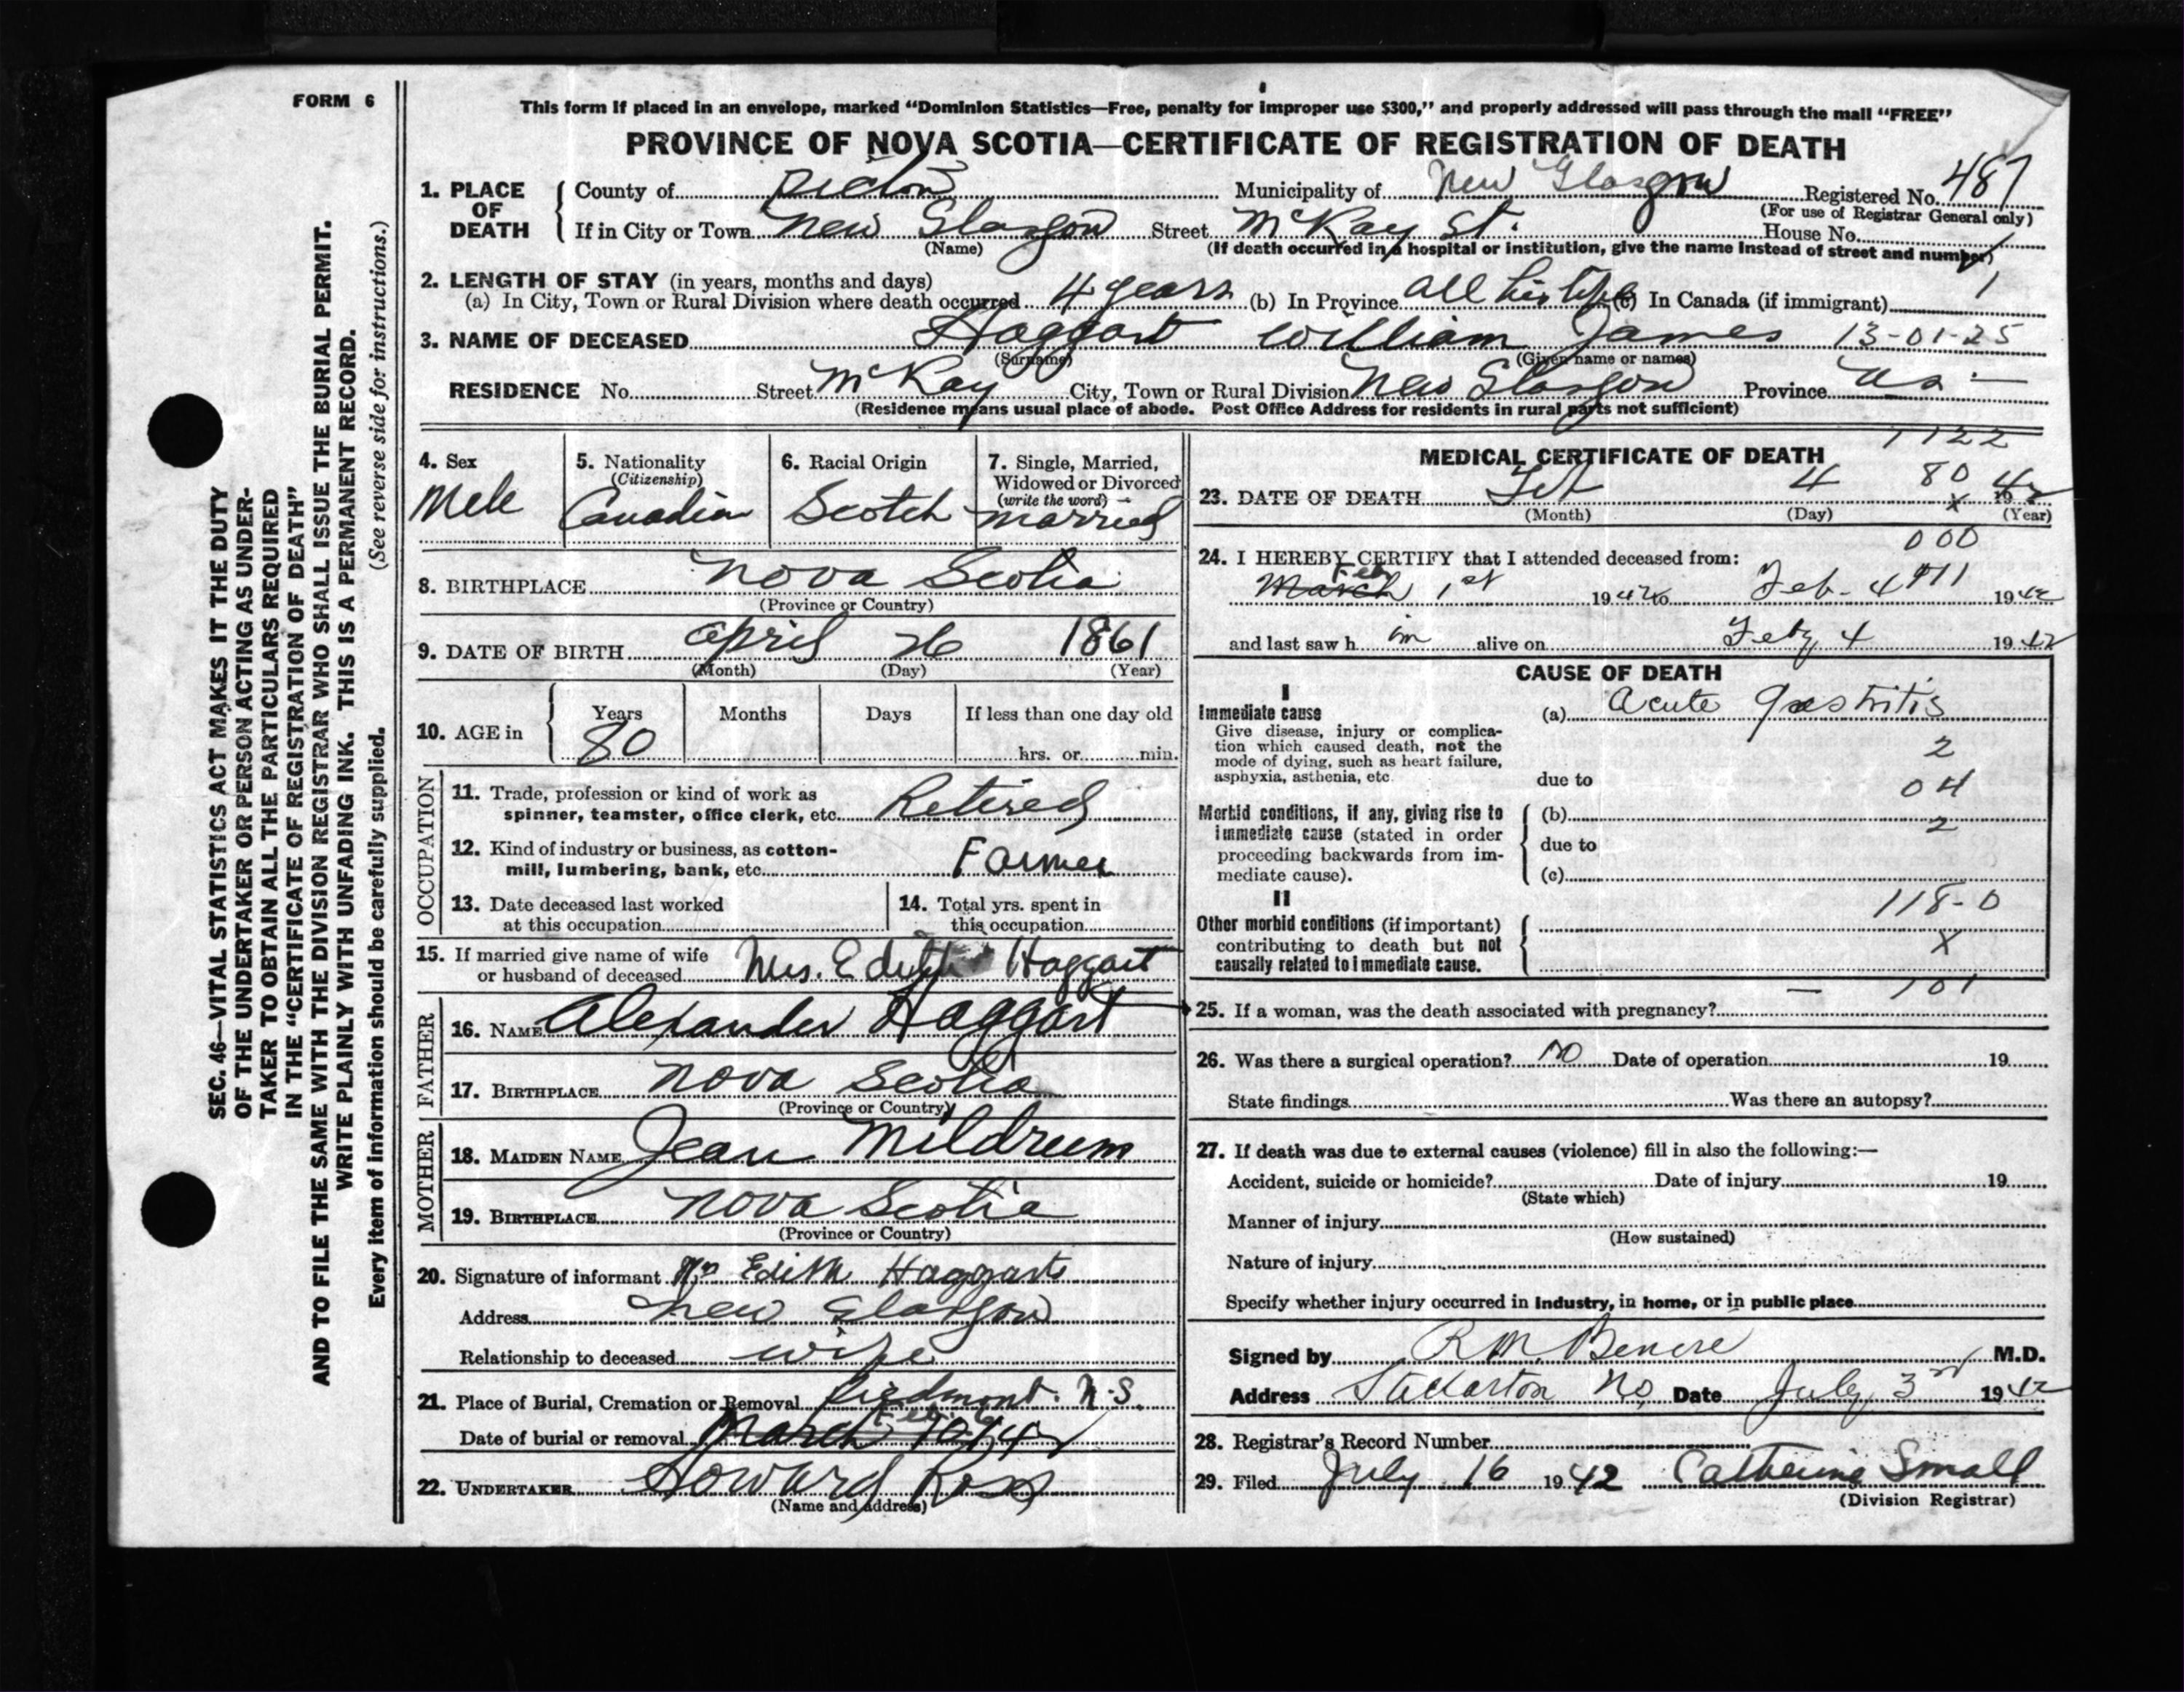 FORM 6
This form if placed in an envelope, marked “Dominion Statistics—Free, penalty for improper use $300,” and properly addressed will pass through the mail “FREE”
PROVINCE OF NOVA SCOTIA—CERTIFICATE OF REGISTRATION OF DEATH
1. PLACE OF DEATH { County of Pictou Municipality of New Glasgow Registered No. 487
(For use of Registrar General only)
If in City or Town New Glasgow Street McKay St. House No.
(Name) (If death occurred in a hospital or institution, give the name instead of street and number)
2. LENGTH OF STAY (in years, months and days)
(a) In City, Town or Rural Division where death occurred 4 years (b) In Province all his life (c) In Canada (if immigrant)
3. NAME OF DECEASED Haggart William James 13-01-25
(Surname) (Given name or names)
RESIDENCE No. Street McKay City, Town or Rural Division New Glasgow Province N.S.
(Residence means usual place of abode. Post Office Address for residents in rural parts not sufficient)
4. Sex
Male
5. Nationality
(Citizenship)
Canadian
6. Racial Origin
Scotch
7. Single, Married,
Widowed or Divorced
(write the word)
married
8. BIRTHPLACE Nova Scotia
(Province or Country)
9. DATE OF BIRTH April 26 1861
(Month) (Day) (Year)
10. AGE in { Years Months Days If less than one day old
80 hrs. or min.
OCCUPATION
11. Trade, profession or kind of work as
spinner, teamster, office clerk, etc. Retired
12. Kind of industry or business, as cotton-
mill, lumbering, bank, etc. Farmer
13. Date deceased last worked
at this occupation
14. Total yrs. spent in
this occupation
15. If married give name of wife
or husband of deceased Mrs. Edith Haggart
FATHER
16. NAME Alexander Haggart
17. BIRTHPLACE Nova Scotia
(Province or Country)
MOTHER
18. MAIDEN NAME Jean Mildrum
19. BIRTHPLACE Nova Scotia
(Province or Country)
20. Signature of informant Mrs Edith Haggart
Address New Glasgow
Relationship to deceased wife
21. Place of Burial, Cremation or Removal Piedmont. N.S.
Feb. 6
Date of burial or removal March 10/42
22. UNDERTAKER Howard Ross
(Name and address)
7122
MEDICAL CERTIFICATE OF DEATH
23. DATE OF DEATH Feb 4 80 x 1942
(Month) (Day) (Year)
000
24. I HEREBY CERTIFY that I attended deceased from:
Feb
March 1st 1942 to Feb. 4 1942
and last saw him alive on Feby 4 1942
CAUSE OF DEATH
I
Immediate cause
Give disease, injury or complica-
tion which caused death, not the
mode of dying, such as heart failure,
asphyxia, asthenia, etc.
(a) Acute gastritis
2
due to
04
Morbid conditions, if any, giving rise to
immediate cause (stated in order
proceeding backwards from im-
mediate cause).
(b)
2
due to
(c)
II
118-0
Other morbid conditions (if important)
contributing to death but not
causally related to immediate cause.
x
101
25. If a woman, was the death associated with pregnancy? —
26. Was there a surgical operation? no Date of operation 19
State findings Was there an autopsy?
27. If death was due to external causes (violence) fill in also the following:—
Accident, suicide or homicide? Date of injury 19
(State which)
Manner of injury
(How sustained)
Nature of injury
Specify whether injury occurred in industry, in home, or in public place
Signed by R.M. M.D.
Address Stellarton NS Date July 3rd 1942
28. Registrar's Record Number
29. Filed July 16 1942 Catherine Small
(Division Registrar)
SEC. 46—VITAL STATISTICS ACT MAKES IT THE DUTY
OF THE UNDERTAKER OR PERSON ACTING AS UNDER-
TAKER TO OBTAIN ALL THE PARTICULARS REQUIRED
IN THE “CERTIFICATE OF REGISTRATION OF DEATH”
AND TO FILE THE SAME WITH THE DIVISION REGISTRAR WHO SHALL ISSUE THE BURIAL PERMIT.
WRITE PLAINLY WITH UNFADING INK. THIS IS A PERMANENT RECORD.
Every item of information should be carefully supplied. (See reverse side for instructions.)